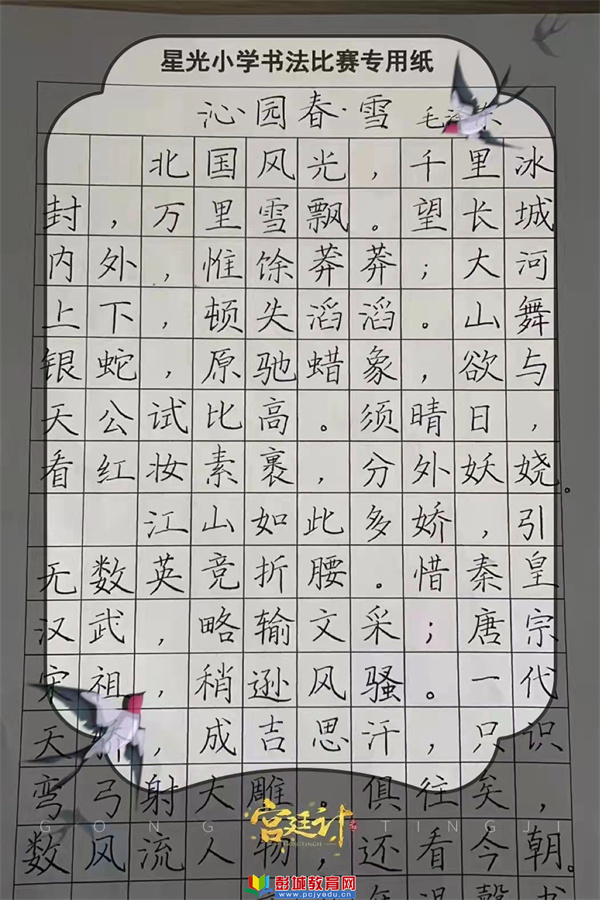 星光小学书法比赛专用纸
沁园春·雪 毛泽东
北国风光，千里冰
封，万里雪飘。望长城
内外，惟馀莽莽；大河
上下，顿失滔滔。山舞
银蛇，原驰蜡象，欲与
天公试比高。须晴日，
看红妆素裹，分外妖娆。
江山如此多娇，引
无数英竞折腰。惜秦皇
汉武，略输文采；唐宗
宋祖，稍逊风骚。一代
天骄，成吉思汗，只识
弯弓射大雕。俱往矣，
GONG TINGJI
宫廷计
数风流人物，还看今朝。
彭城教育网
www.pcjyedu.cn